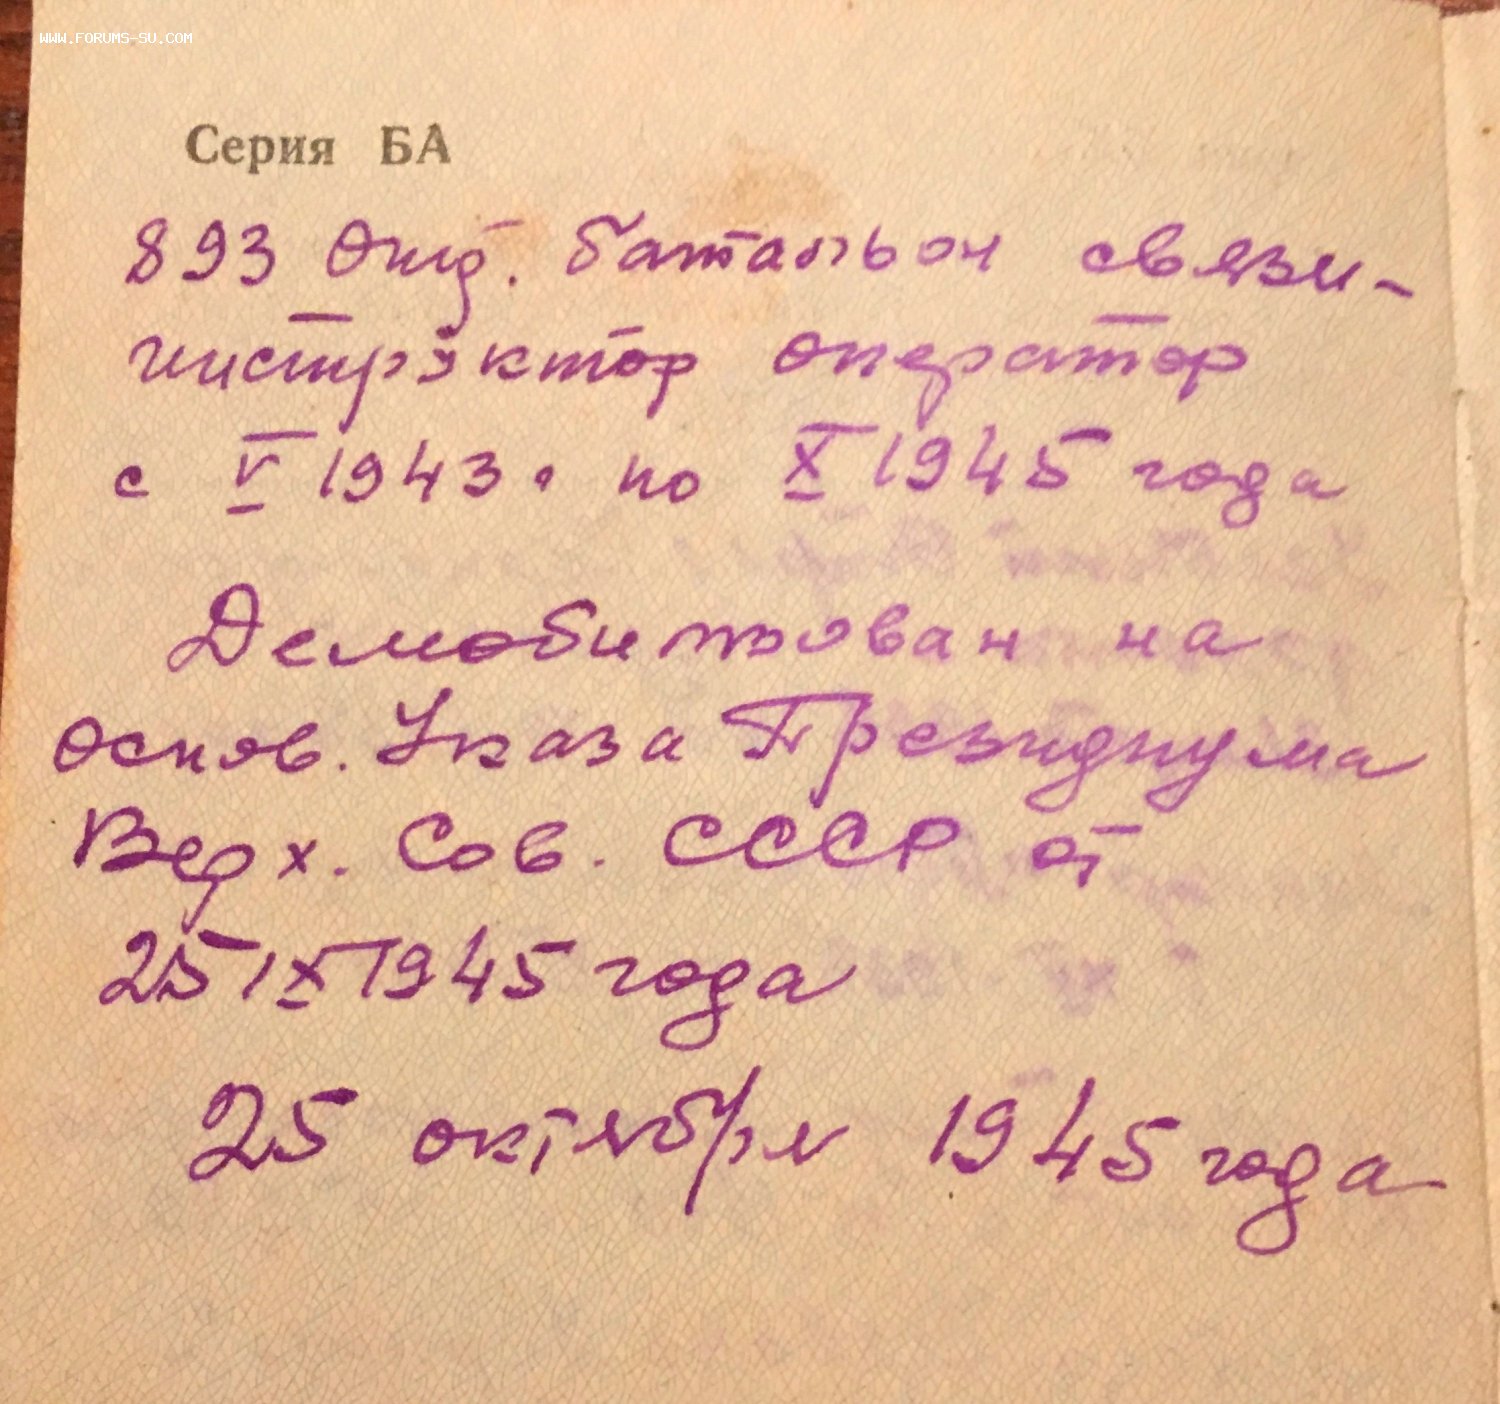 WWW.FORUMS-SU.COM
Серия БА
893 Отд. батальон связи-
инструктор оператор
с V 1943 г по X 1945 года
Демобилизован на
основ. Указа Президиума
Верх. Сов. СССР от
25 IX 1945 года
25 октября 1945 года